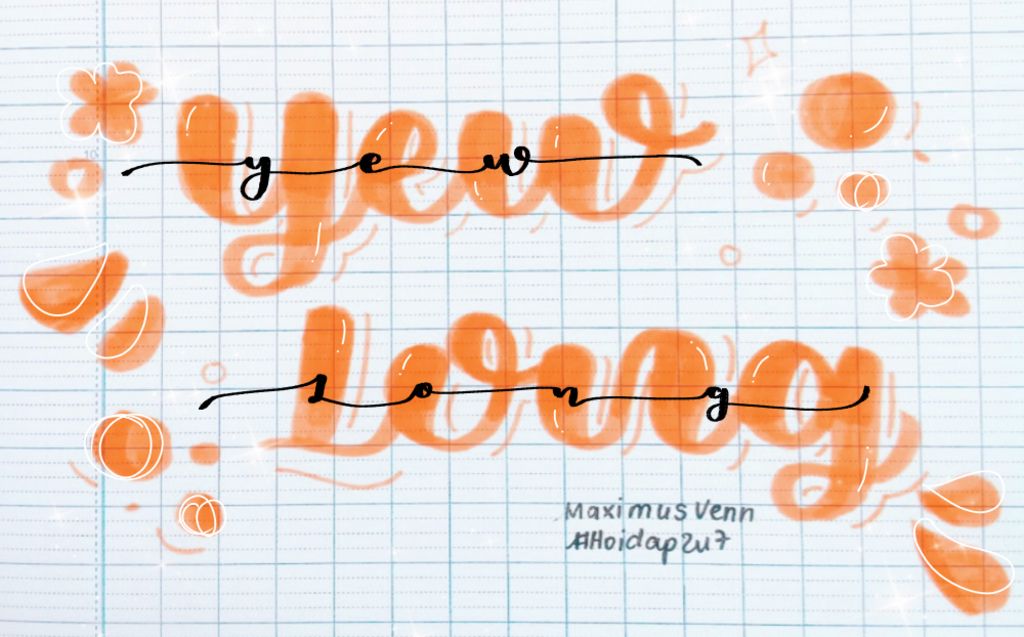 yew
yew
Long
Long
MaximusVenn
#Hoidap247